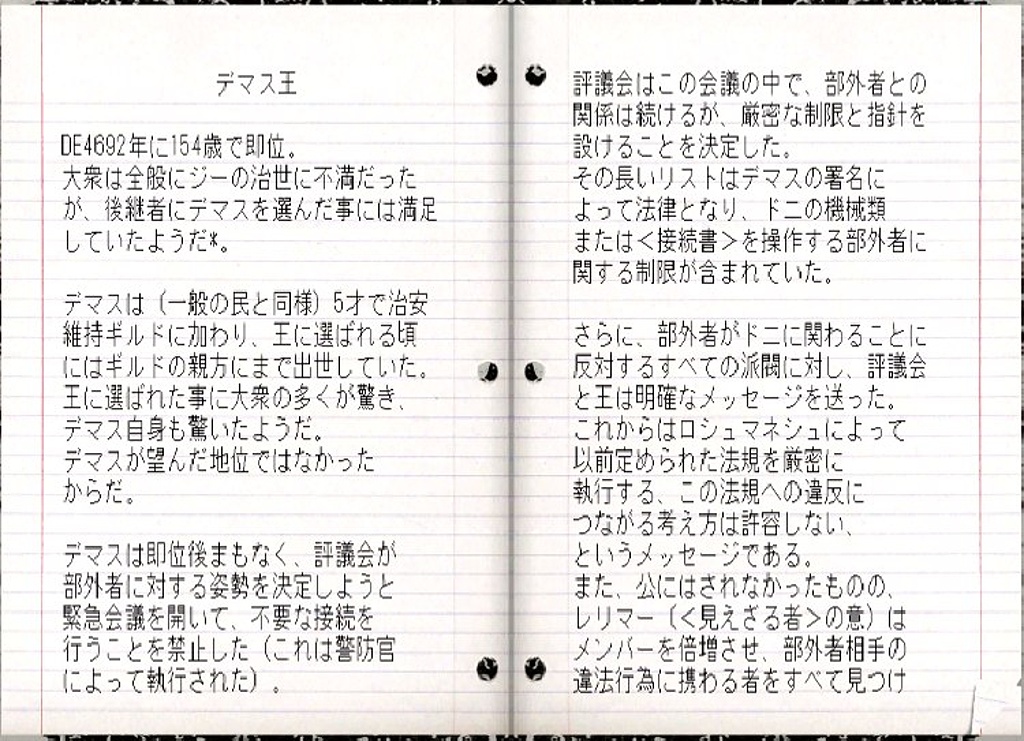 デマス王
DE4692年に154歳で即位。
大衆は全般にジーの治世に不満だった
が、後継者にデマスを選んだ事には満足
していたようだ*。
デマスは（一般の民と同様）5才で治安
維持ギルドに加わり、王に選ばれる頃
にはギルドの親方にまで出世していた。
王に選ばれた事に大衆の多くが驚き、
デマス自身も驚いたようだ。
デマスが望んだ地位ではなかった
からだ。
デマスは即位後まもなく、評議会が
部外者に対する姿勢を決定しようと
緊急会議を開いて、不要な接続を
行うことを禁止した（これは警防官
によって執行された）。
評議会はこの会議の中で、部外者との
関係は続けるが、厳密な制限と指針を
設けることを決定した。
その長いリストはデマスの署名に
よって法律となり、ドニの機械類
または＜接続書＞を操作する部外者に
関する制限が含まれていた。
さらに、部外者がドニに関わることに
反対するすべての派閥に対し、評議会
と王は明確なメッセージを送った。
これからはロシュマネシュによって
以前定められた法規を厳密に
執行する、この法規への違反に
つながる考え方は許容しない、
というメッセージである。
また、公にはされなかったものの、
レリマー（＜見えざる者＞の意）は
メンバーを倍増させ、部外者相手の
違法行為に携わる者をすべて見つけ